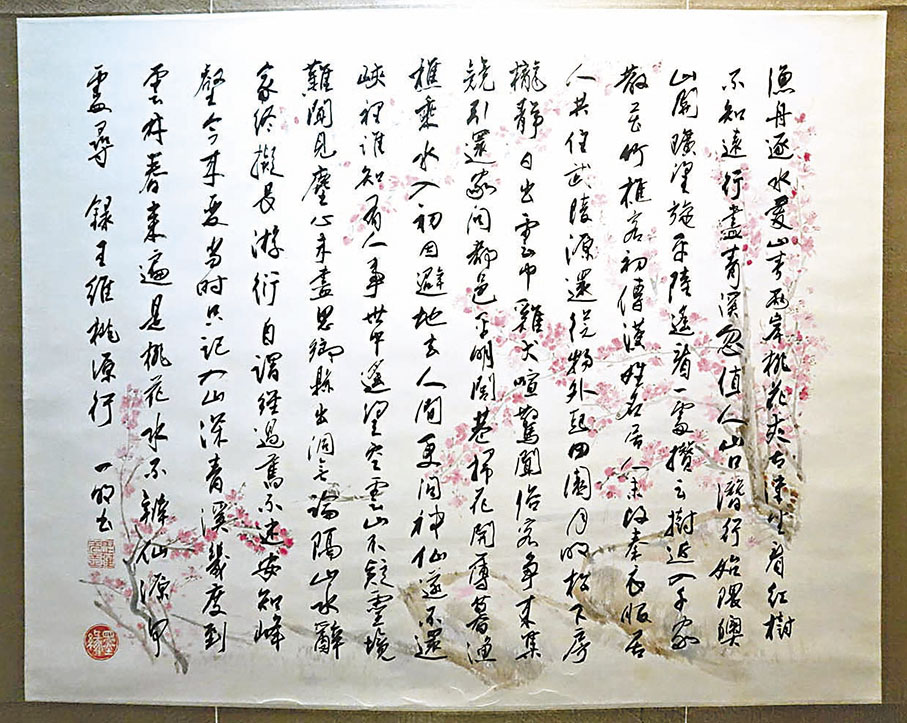 漁舟逐水愛山春兩岸桃花夾古津坐看紅樹
不知遠行盡青溪忽值人山口潛行始隈隩
山開曠望旋平陸遙看一處攢云樹近入千家
散花竹樵客初傳漢姓名居人未改秦衣服居
人共住武陵源還從物外起田園月明松下房
櫳靜日出雲中雞犬喧驚聞俗客爭來集
競引還家問都邑平明閭巷掃花開薄暮漁
樵乘水入初因避地去人間更問神仙遂不還
峽裡誰知有人事世中遙望空雲山不疑靈境
難聞見塵心未盡思鄉縣出洞無論隔山水辭
家終擬長游衍自謂經過舊不迷安知峰
壑今來變當时只記入山深青溪幾度到
雲林春來遍是桃花水不辨仙源何
處尋 錄王維桃源行 一明书